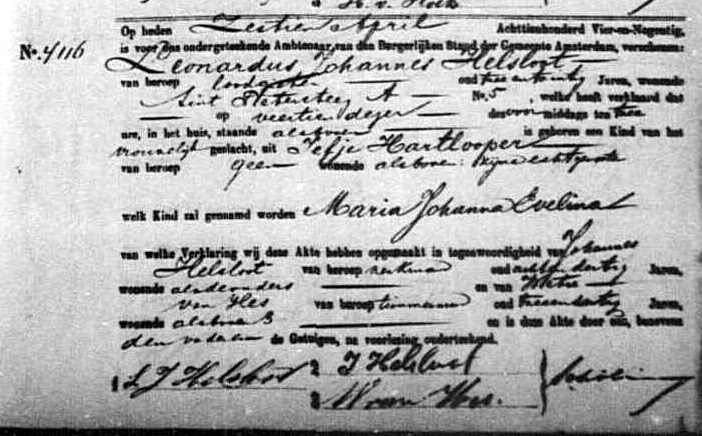 H. v. Hoek
Op heden Zestien April Achttienhonderd Vier-en-Negentig,
No. 4116 is voor Ons ondergeteekende Ambtenaar van den Burgerlijken Stand der Gemeente Amsterdam, verschenen:
Leonardus Johannes Helsloot
van beroep oud Jaren, wonende
Sint Pietersteeg A No. 5, welke heeft verklaard dat
op veertien dezer des voor middags ten twee
ure, in het huis, staande alsboven is geboren een Kind van het
vrouwelijk geslacht, uit Jefje Hartlooper
van beroep geen wonende alsboven: zijne echtgenote
welk Kind zal genaamd worden Maria Johanna Evelina
van welke Verklaring wij deze Akte hebben opgemaakt in tegenwoordigheid van Johannes
Helsloot van beroep oud Jaren,
wonende en van
van Hes van beroep timmerman oud Jaren,
wonende alsboven 3 en is deze Akte door ons, benevens
den vader en de Getuigen, na voorlezing, onderteekend.
L J Helsloot J Helsloot
W van Hes.